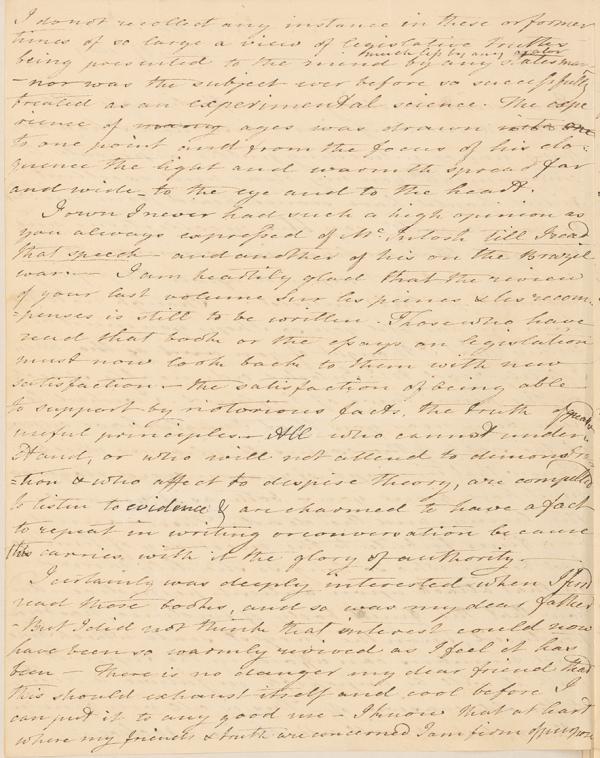 I do not recollect any instance in these or former
times of so large a view of legislative truths
being presented to the mind by any statesman
much less by any orator
- nor was the subject ever before so successfully
treated as an experimental science. The expe
rience of many ages was drawn into one
to one point and from the focus of his elo-
quence the light and warmth spread far
and wide - to the eye and to the heart.
I own I never had such a high opinion as
you always expressed of Mc.Intosh till I read
that speech - and another of his on the Brazil
war. - I am heartily glad that the review
of your last volume sur les peines & les recom-
-penses is still to be written. Those who have
read that book or the essays on legislation
must now look back to them with new
satisfaction - the satisfaction of being able
to support by notorious facts, the truth of great
useful principles. All who cannot under-
stand, or who will not attend to demonstra-
-tion & who affect to despise theory, are compelled
to listen to evidence & are charmed to have a fact
to repeat in writing or conversation because
this carries with it the glory of authority.
I certainly was deeply interested when I first
read those books, and so was my dear father
- But I did not think that interest could now
have been so warmly revived as I feel it has
been - There is no danger my dear friend that
this should exhaust itself and cool before I
can put it to any good use - I know that at heart
where my friends & truth are concerned I am firm of purpose